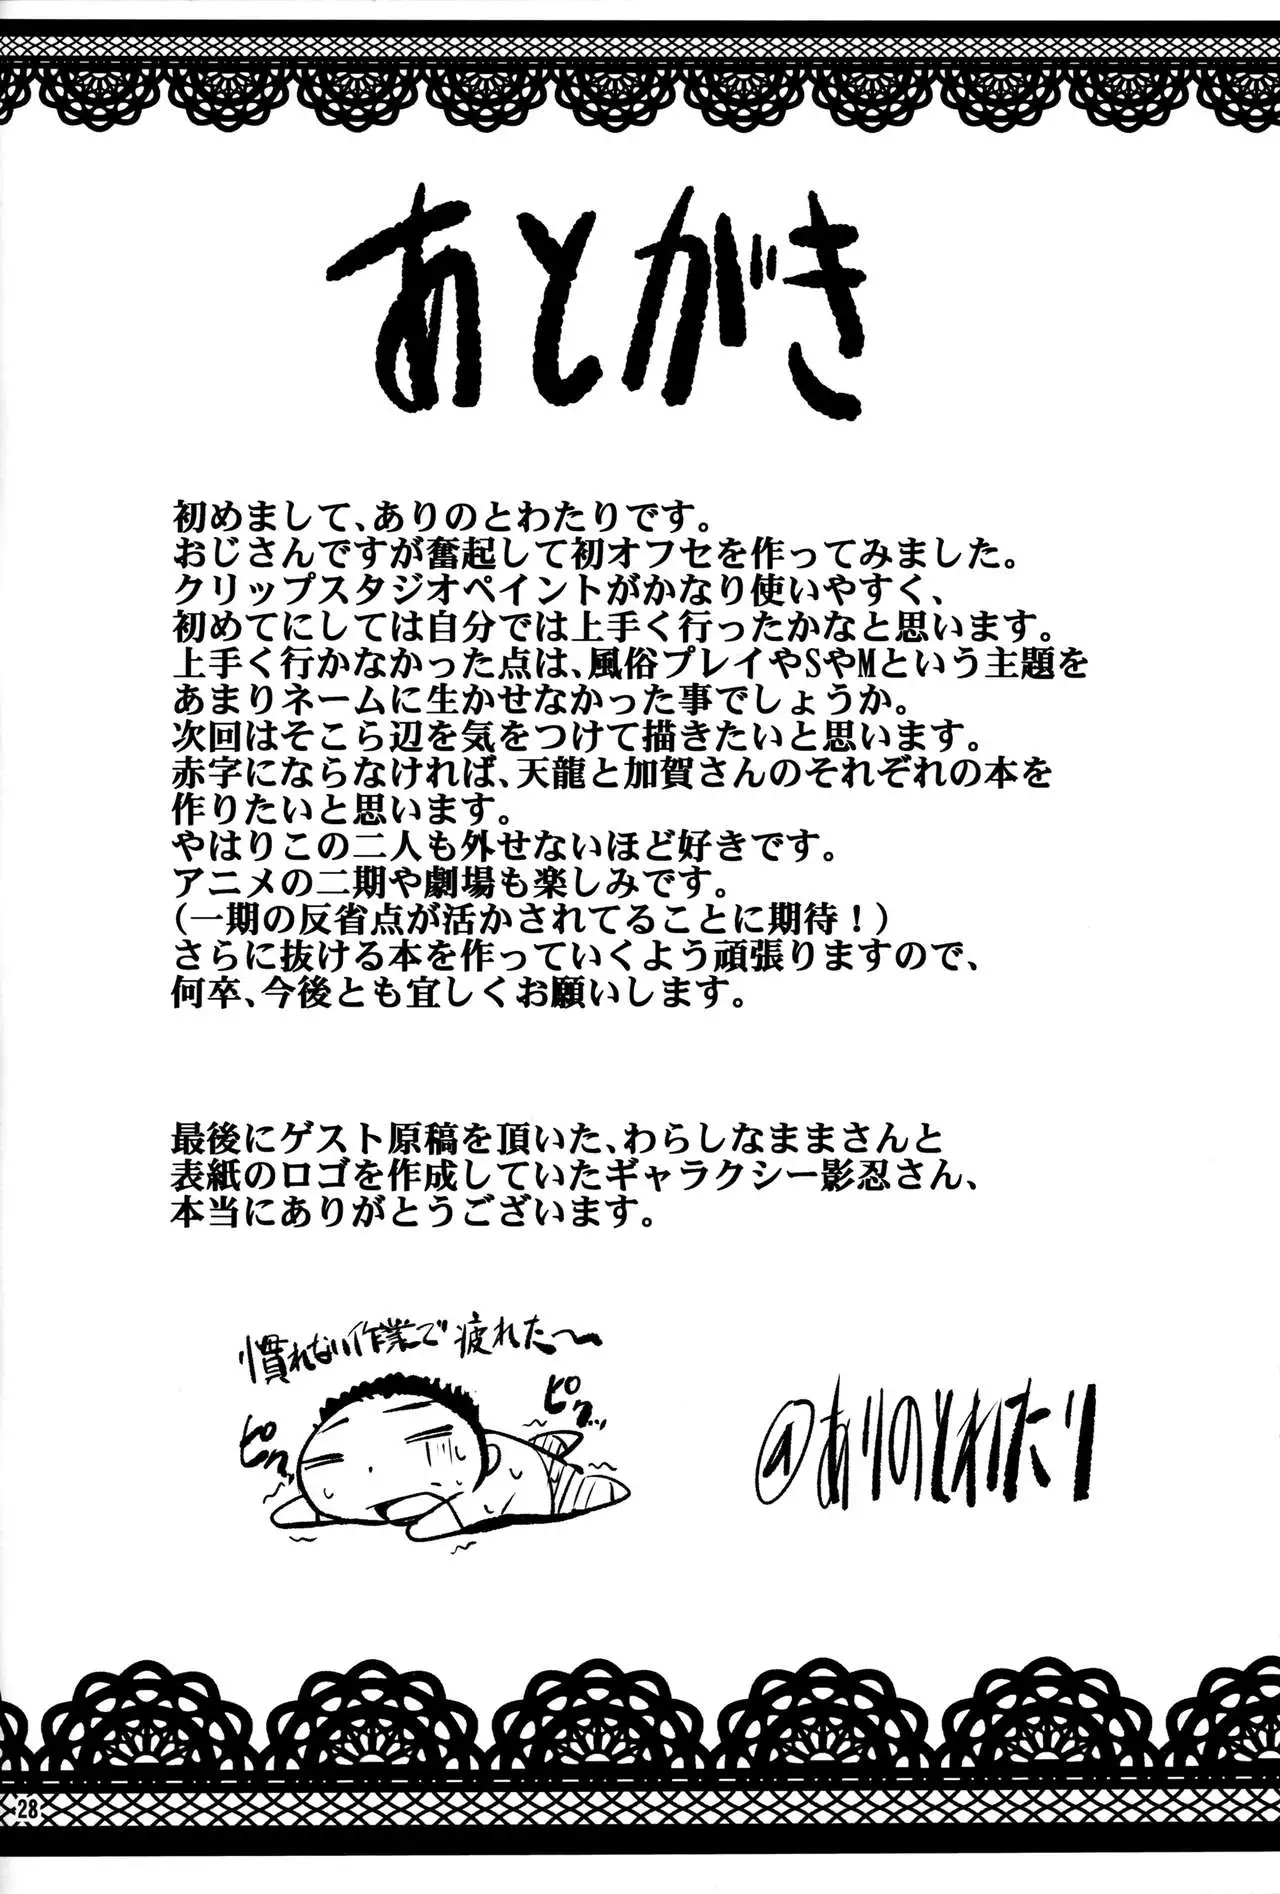 あとがき
初めまして、ありのとわたりです。
おじさんですが奮起して初オフセを作ってみました。
クリップスタジオペイントがかなり使いやすく、
初めてにしては自分では上手く行ったかなと思います。
上手く行かなかった点は、風俗プレイやSやMという主題を
あまりネームに生かせなかった事でしょうか。
次回はそこら辺を気をつけて描きたいと思います。
赤字にならなければ、天龍と加賀さんのそれぞれの本を
作りたいと思います。
やはりこの二人も外せないほど好きです。
アニメの二期や劇場も楽しみです。
（一期の反省点が活かされてることに期待！）
さらに抜ける本を作っていくよう頑張りますので、
何卒、今後とも宜しくお願いします。
最後にゲスト原稿を頂いた、わらしなままさんと
表紙のロゴを作成していたギャラクシー影忍さん、
本当にありがとうございます。
慣れない作業で疲れた〜
ピク
ピク
@ありのとわたり
28